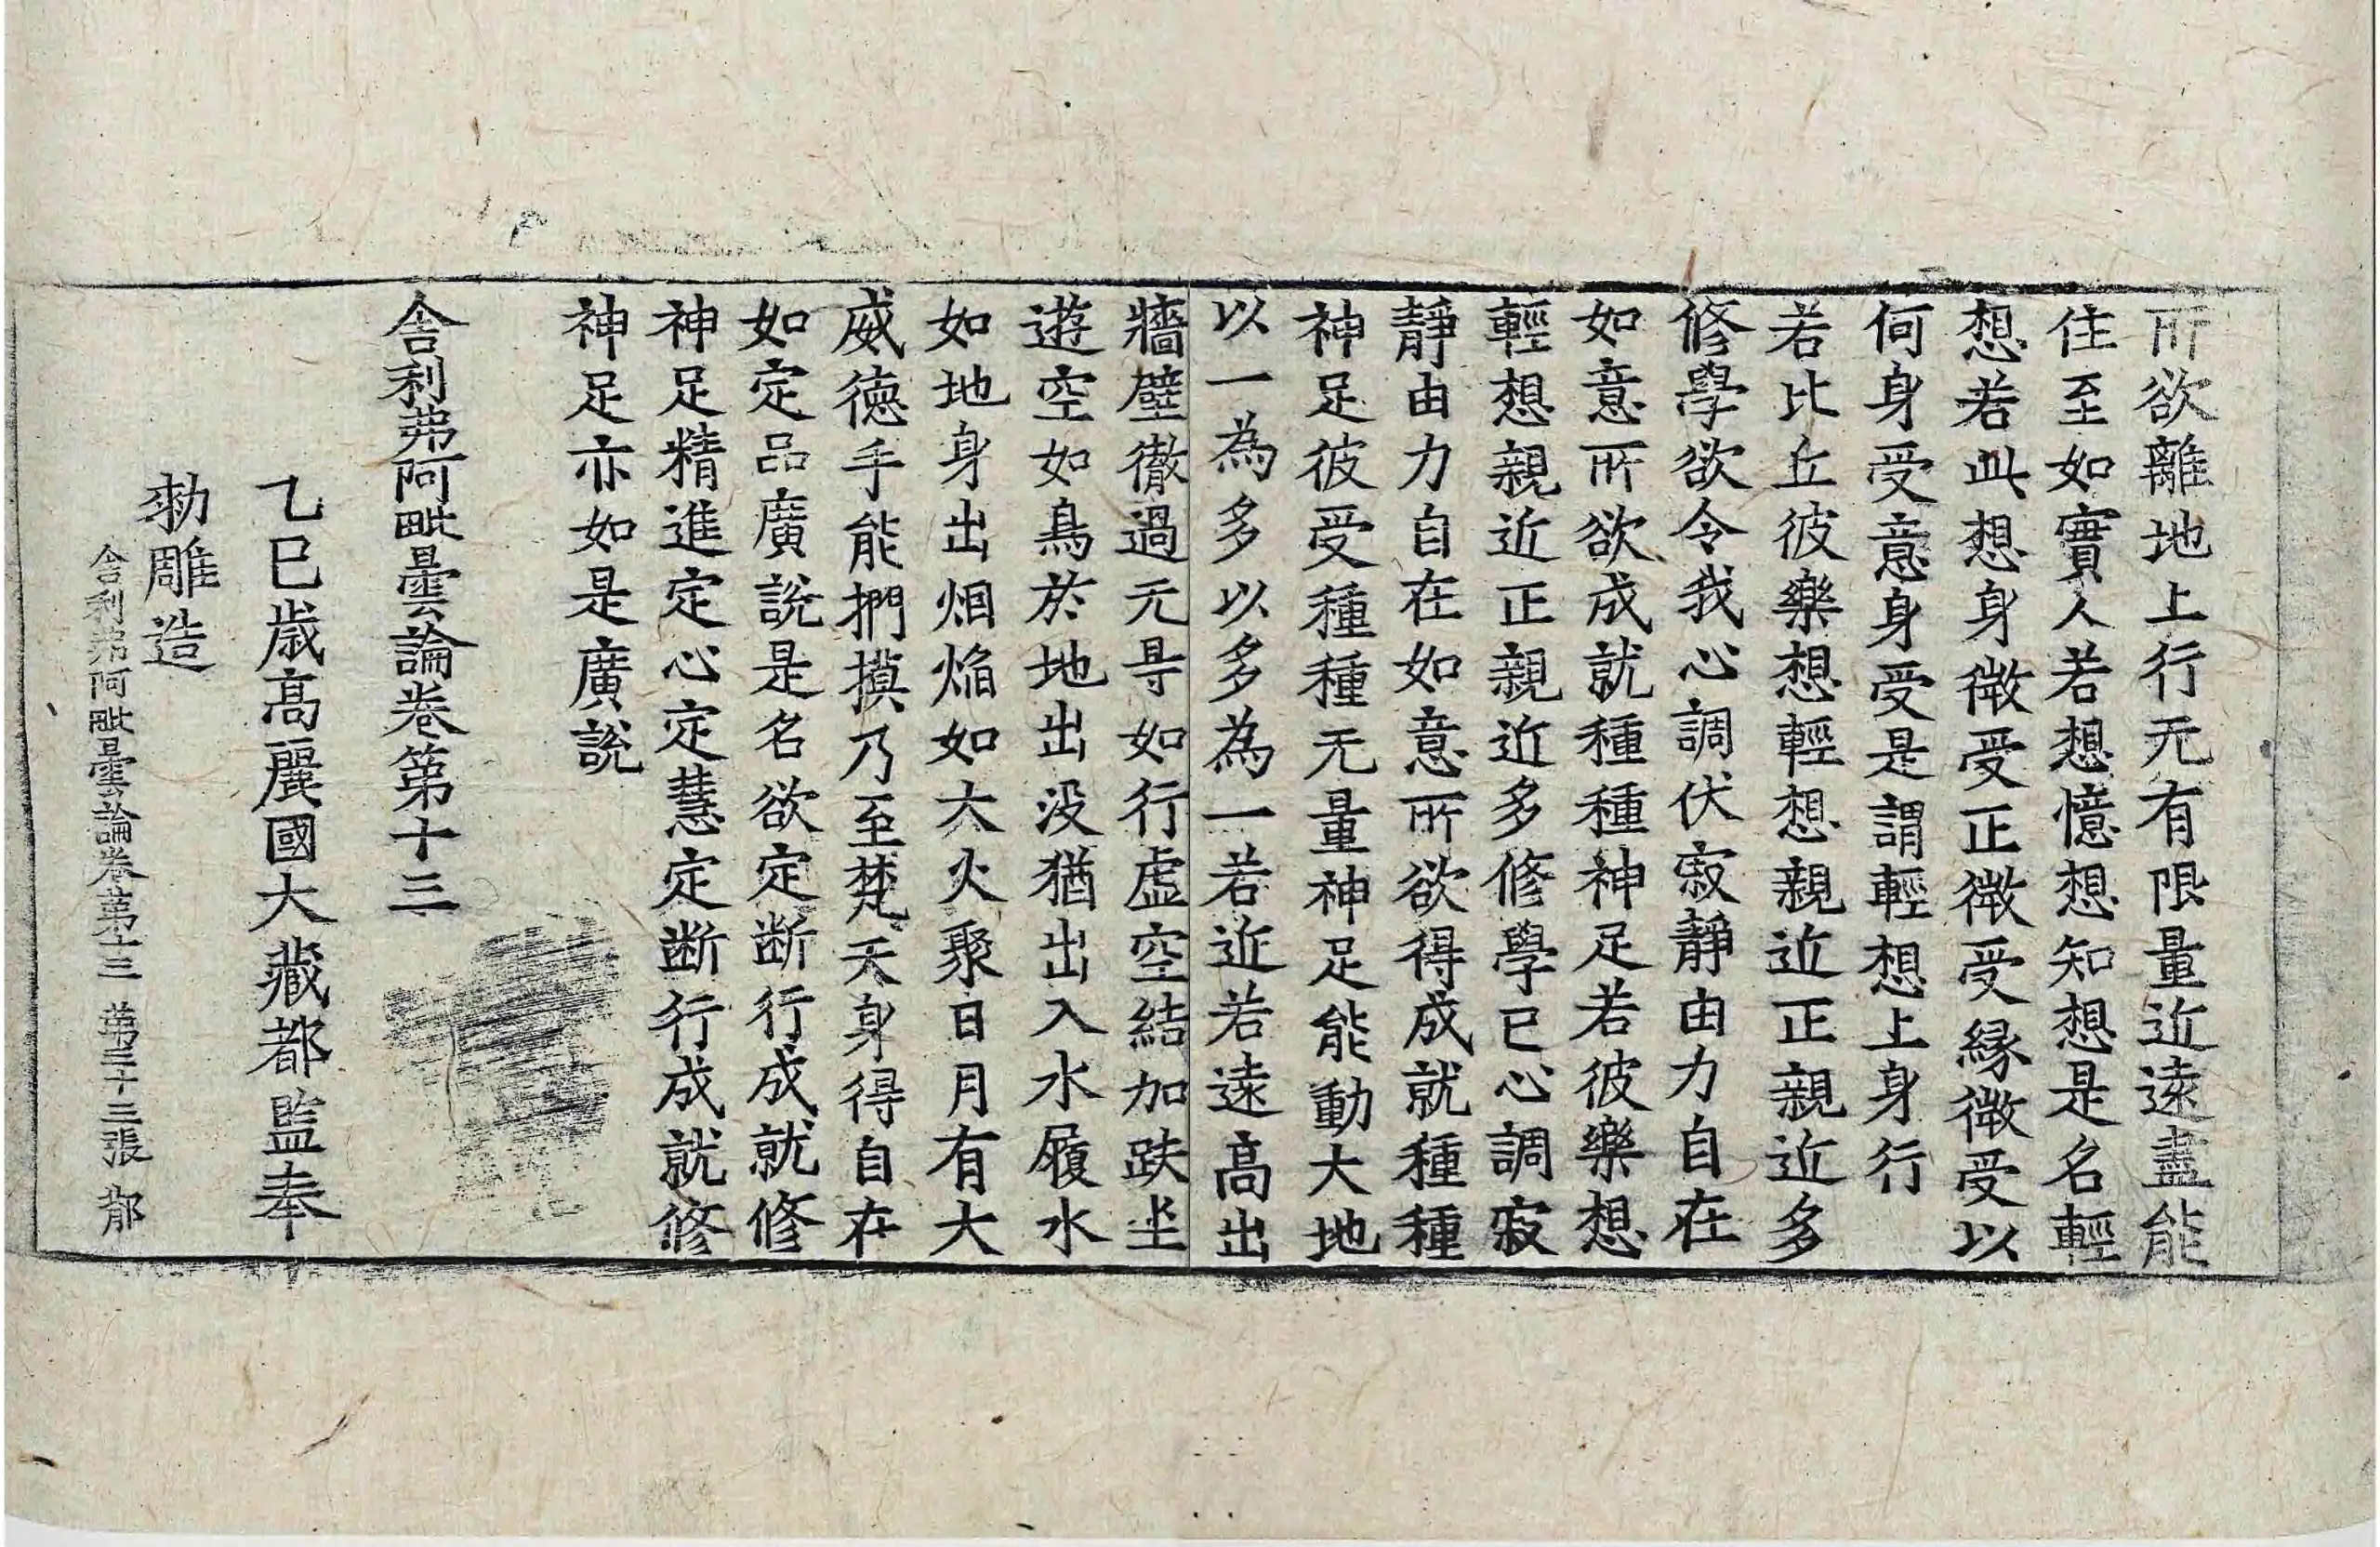 所欲離地上行无有限量近遠盡能
住至如實人若想憶想知想是名輕
想若此想身微受正微受緣微受以
何身受意身受是謂輕想上身行
若比丘彼樂想輕想親近正親近多
修學欲令我心調伏寂靜由力自在
如意所欲成就種種神足若彼樂想
輕想親近正親近多修學已心調寂
靜由力自在如意所欲得成就種種
神足彼受種種无量神足能動大地
以一為多以多為一若近若遠高出
牆壁徹過无㝵如行虛空結加趺坐
遊空如鳥於地出没猶出入水履水
如地身出烟焰如大火聚日月有大
威德手能捫摸乃至梵天身得自在
如定品廣說是名欲定断行成就修
神足精進定心定慧定断行成就修
神足亦如是廣說
舍利弗阿毗曇論卷第十三
乙巳歲高麗國大藏都監奉
勑雕造
舍利弗阿毗曇論卷第十三 第三十三張